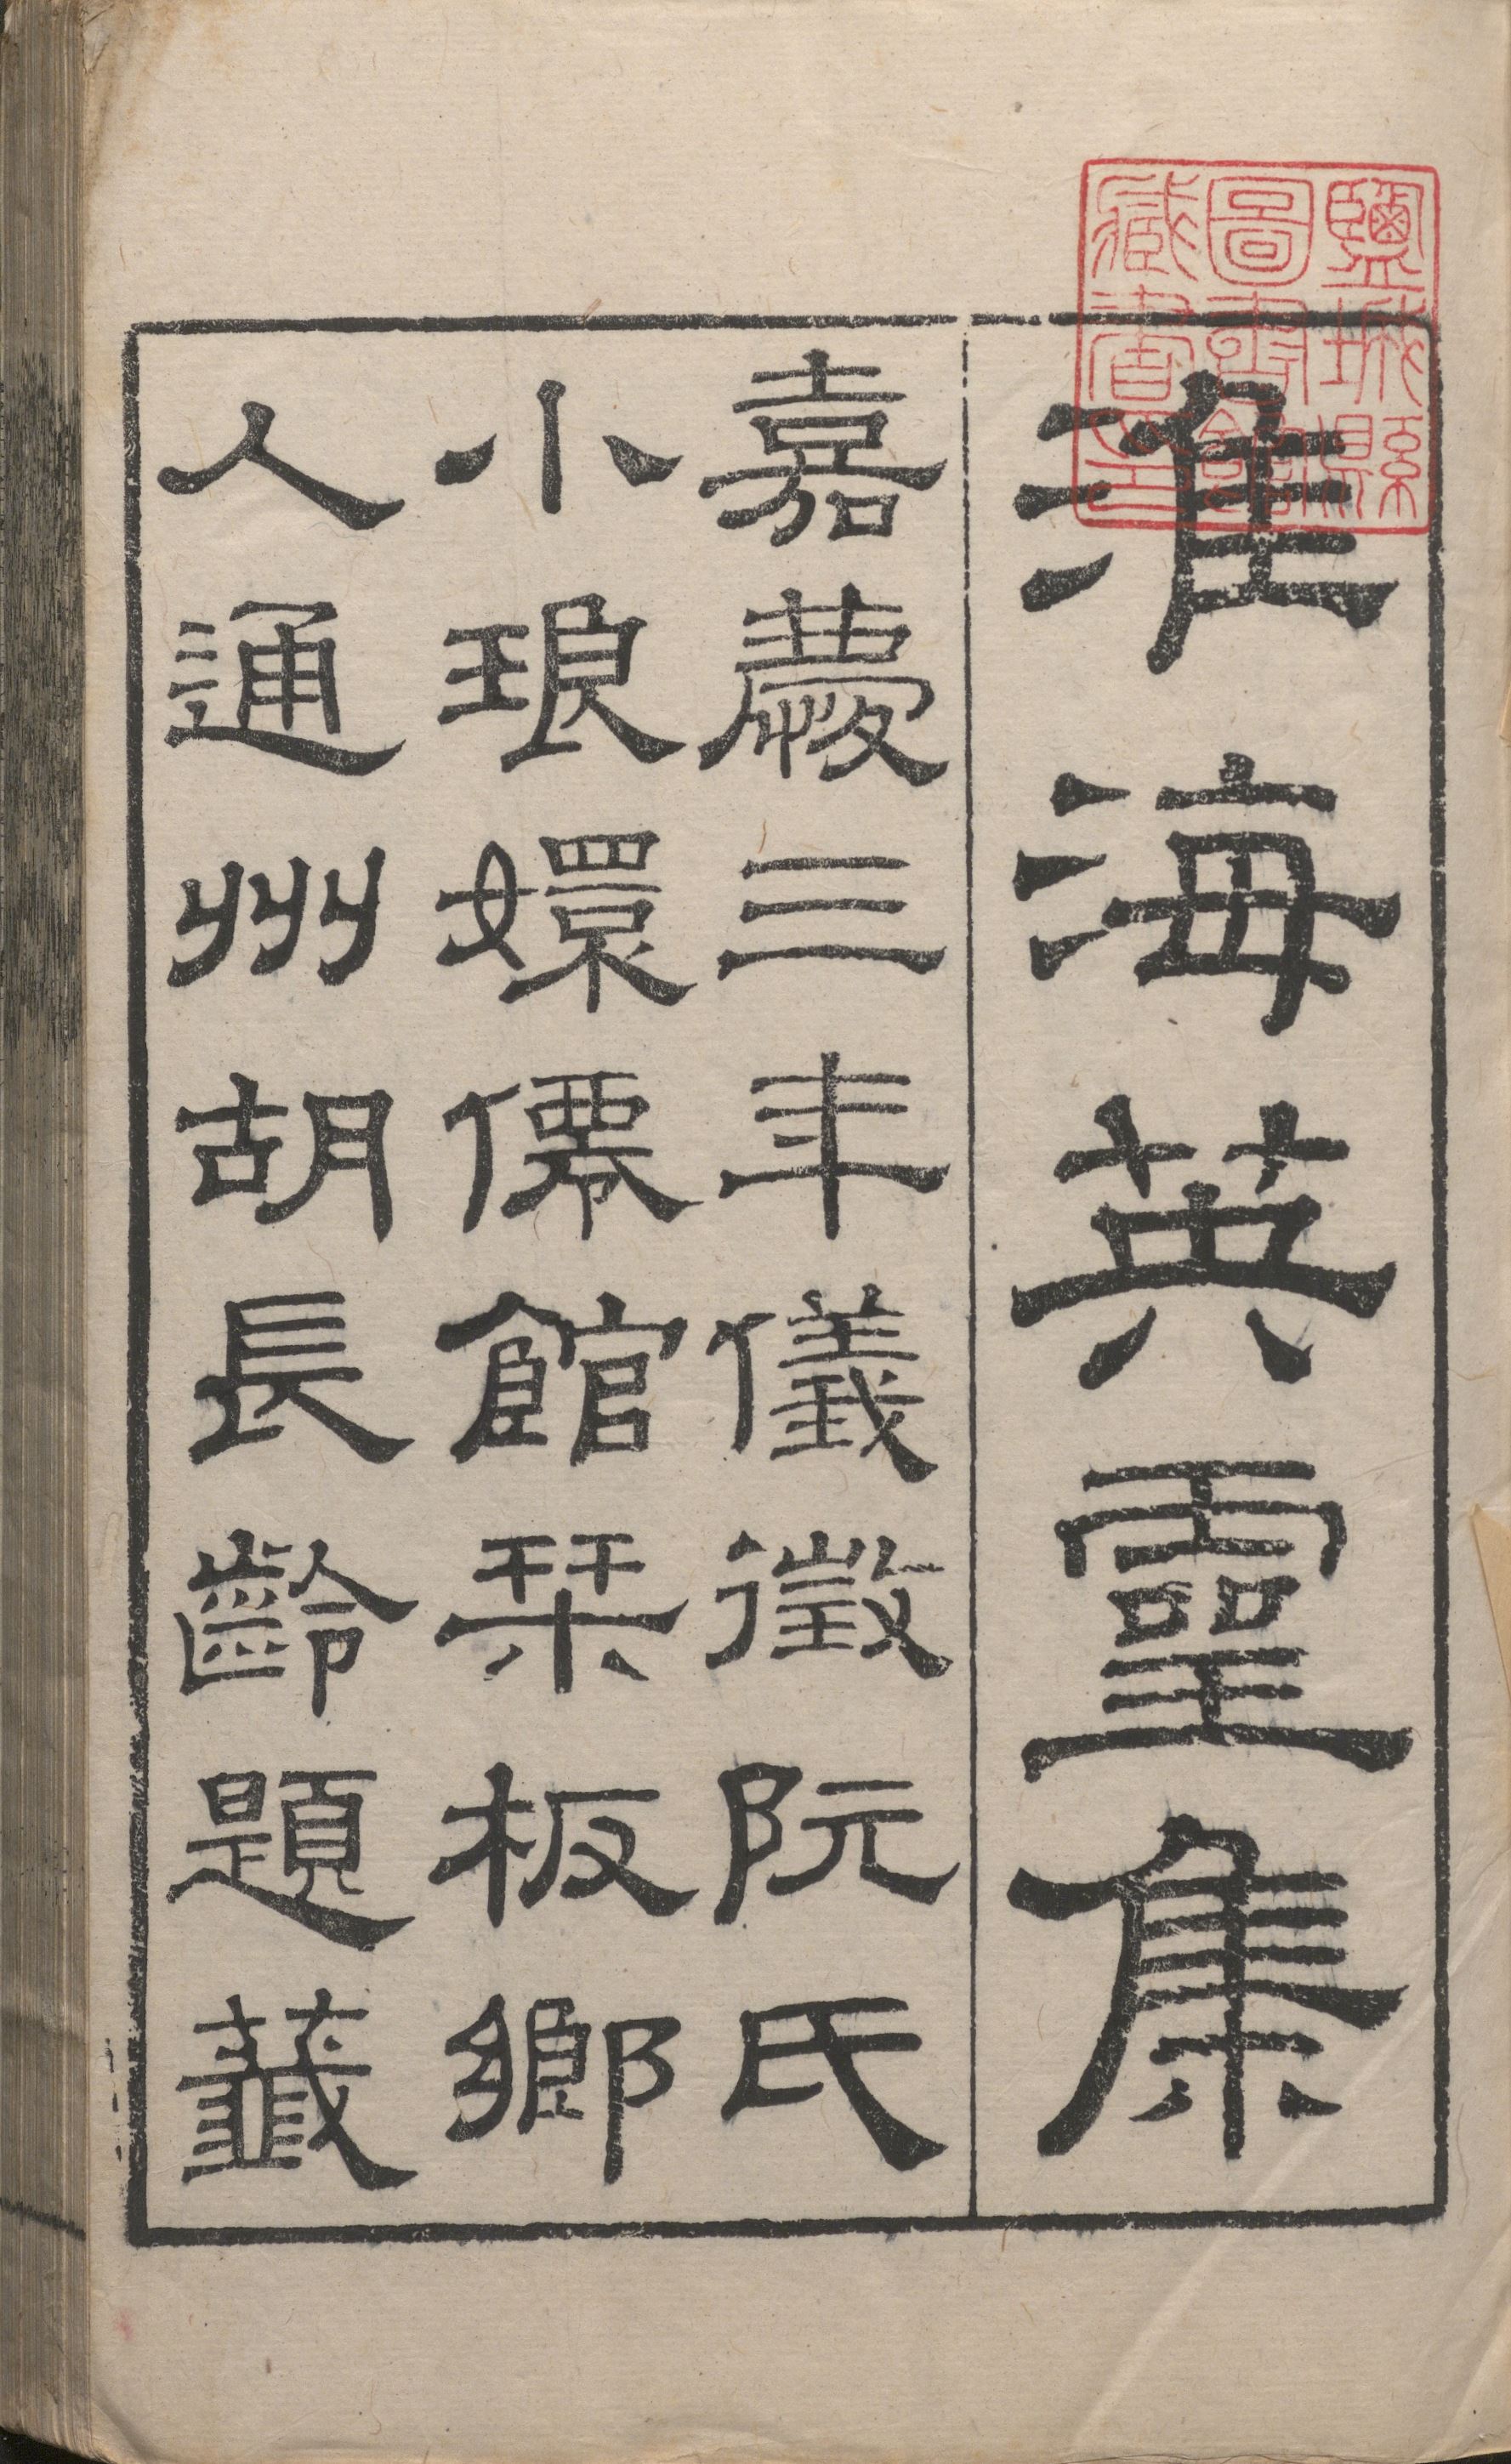 淮海英靈集
嘉慶三年儀徵阮氏
小琅嬛僊館栞板鄉
人通州胡長齡題籤
鹽城縣
圖書館
藏書之印